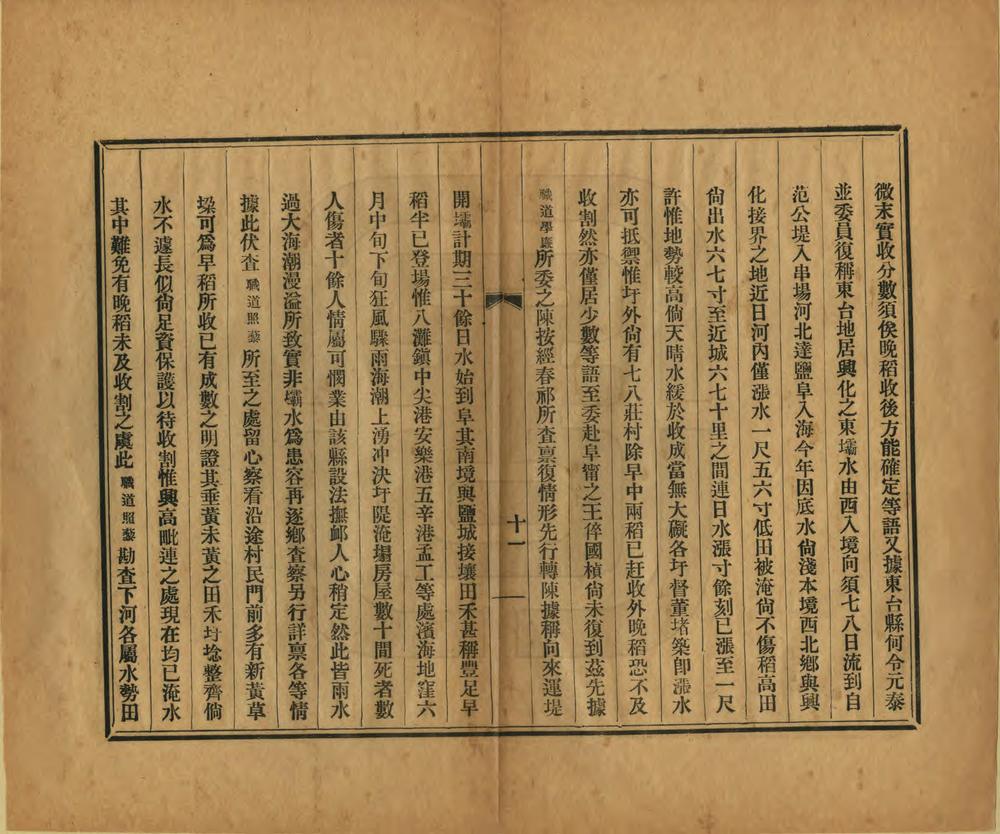 微末實收分數須俟晚稻收後方能確定等語又據東台縣何令元泰
並委員復稱東台地居興化之東壩水由西入境向須七八日流到自
范公堤入串場河北達鹽阜入海今年因底水尙淺本境西北鄉與興
化接界之地近日河內僅漲水一尺五六寸低田被淹尙不傷稻高田
尙出水六七寸至近城六七十里之間連日水漲寸餘刻已漲至一尺
許惟地勢較高倘天晴水緩於收成當無大礙各圩督董堵築卽漲水
亦可抵禦惟圩外尙有七八莊村除早中兩稻已赶收外晚稻恐不及
收割然亦僅居少數等語至委赴阜甯之王倅國楨尙未復到茲先據
職道學廉所委之陳按經春祁所查禀復情形先行轉陳據稱向來運堤
十一
開壩計期三十餘日水始到阜其南境與鹽城接壤田禾甚稱豐足早
稻半已登場惟八灘鎭中尖港安樂港五辛港孟工等處濱海地窪六
月中旬下旬狂風驟雨海潮上湧冲決圩隄淹塌房屋數十間死者數
人傷者十餘人情屬可憫業由該縣設法撫卹人心稍定然此皆雨水
過大海潮漫溢所致實非壩水爲患容再逐鄉查察另行詳禀各等情
據此伏查職道照藜所至之處留心察看沿途村民門前多有新黃草
垜可爲早稻所收已有成數之明證其垂黃未黃之田禾圩埝整齊倘
水不遽長似尙足資保護以待收割惟興高毗連之處現在均已淹水
其中難免有晚稻未及收割之虞此職道照藜勘查下河各屬水勢田